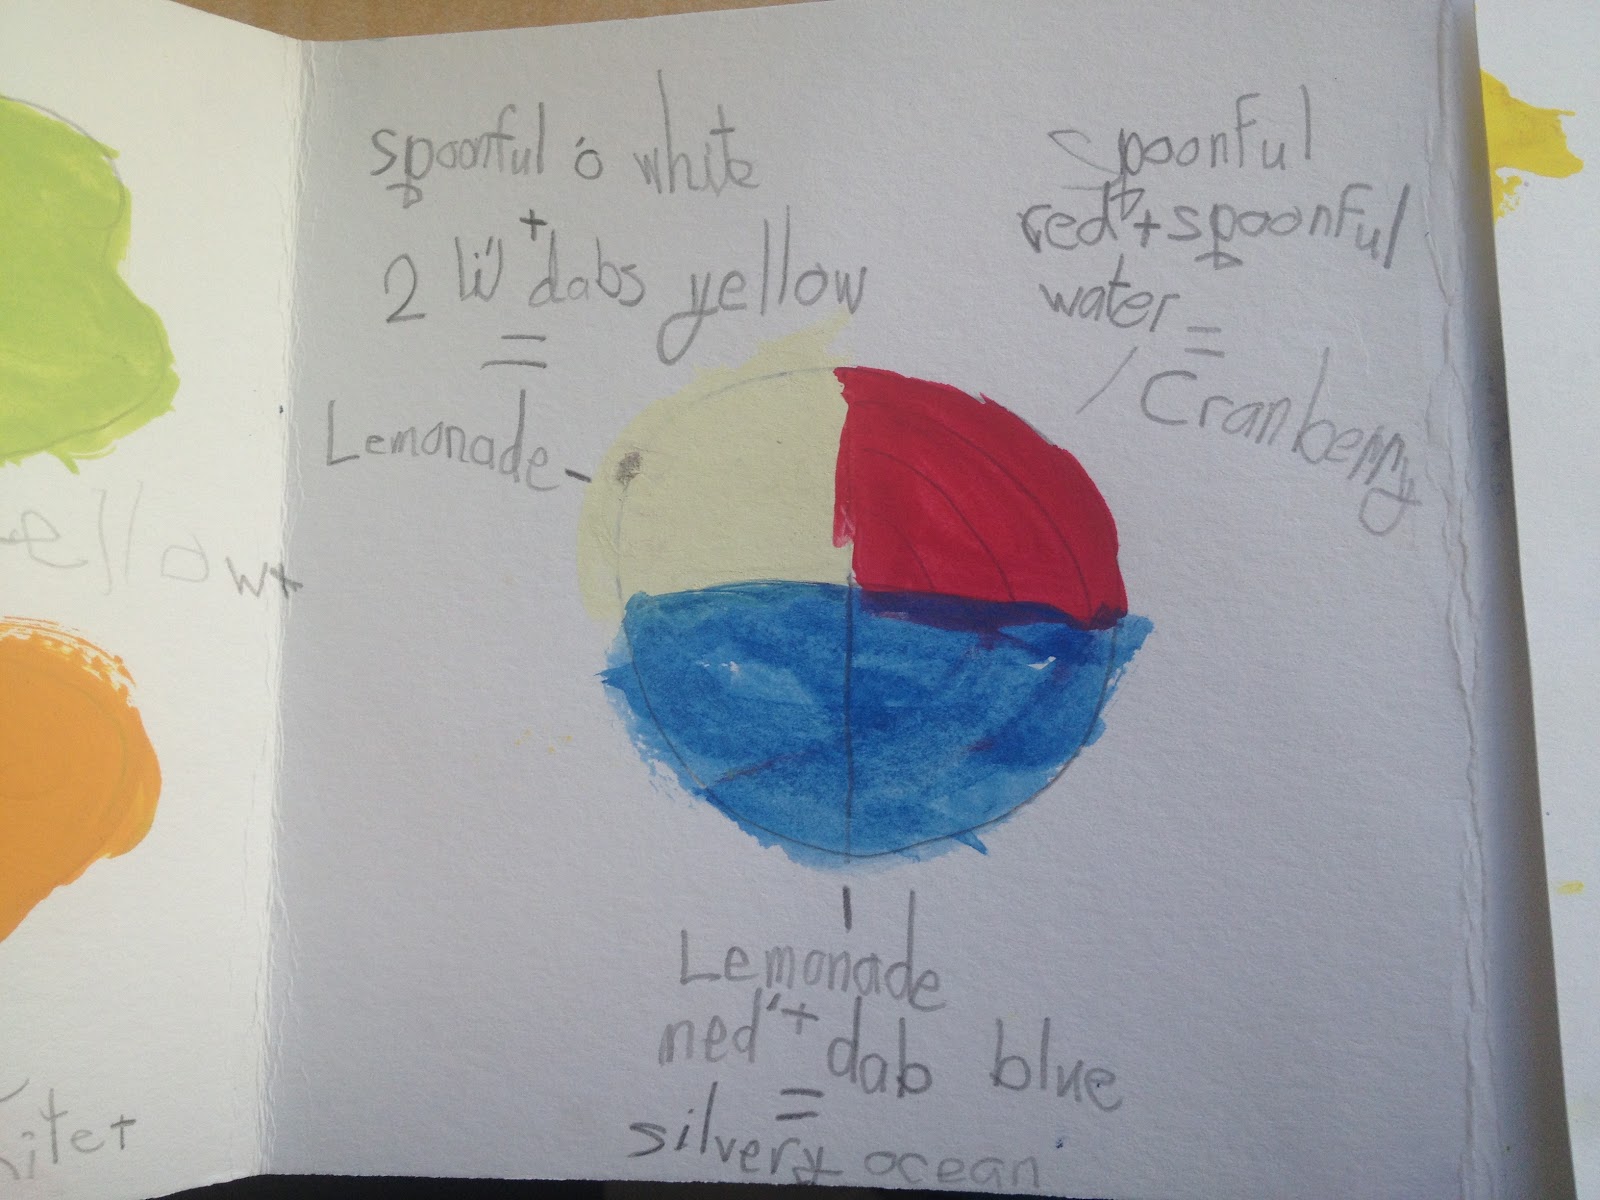 spoonful o' white
+
2 li'l dabs yellow
=
Lemonade -
spoonful
red + spoonful
water =
Cranberry
Lemonade
+ dab blue
=
silvery ocean
ellow +
itet